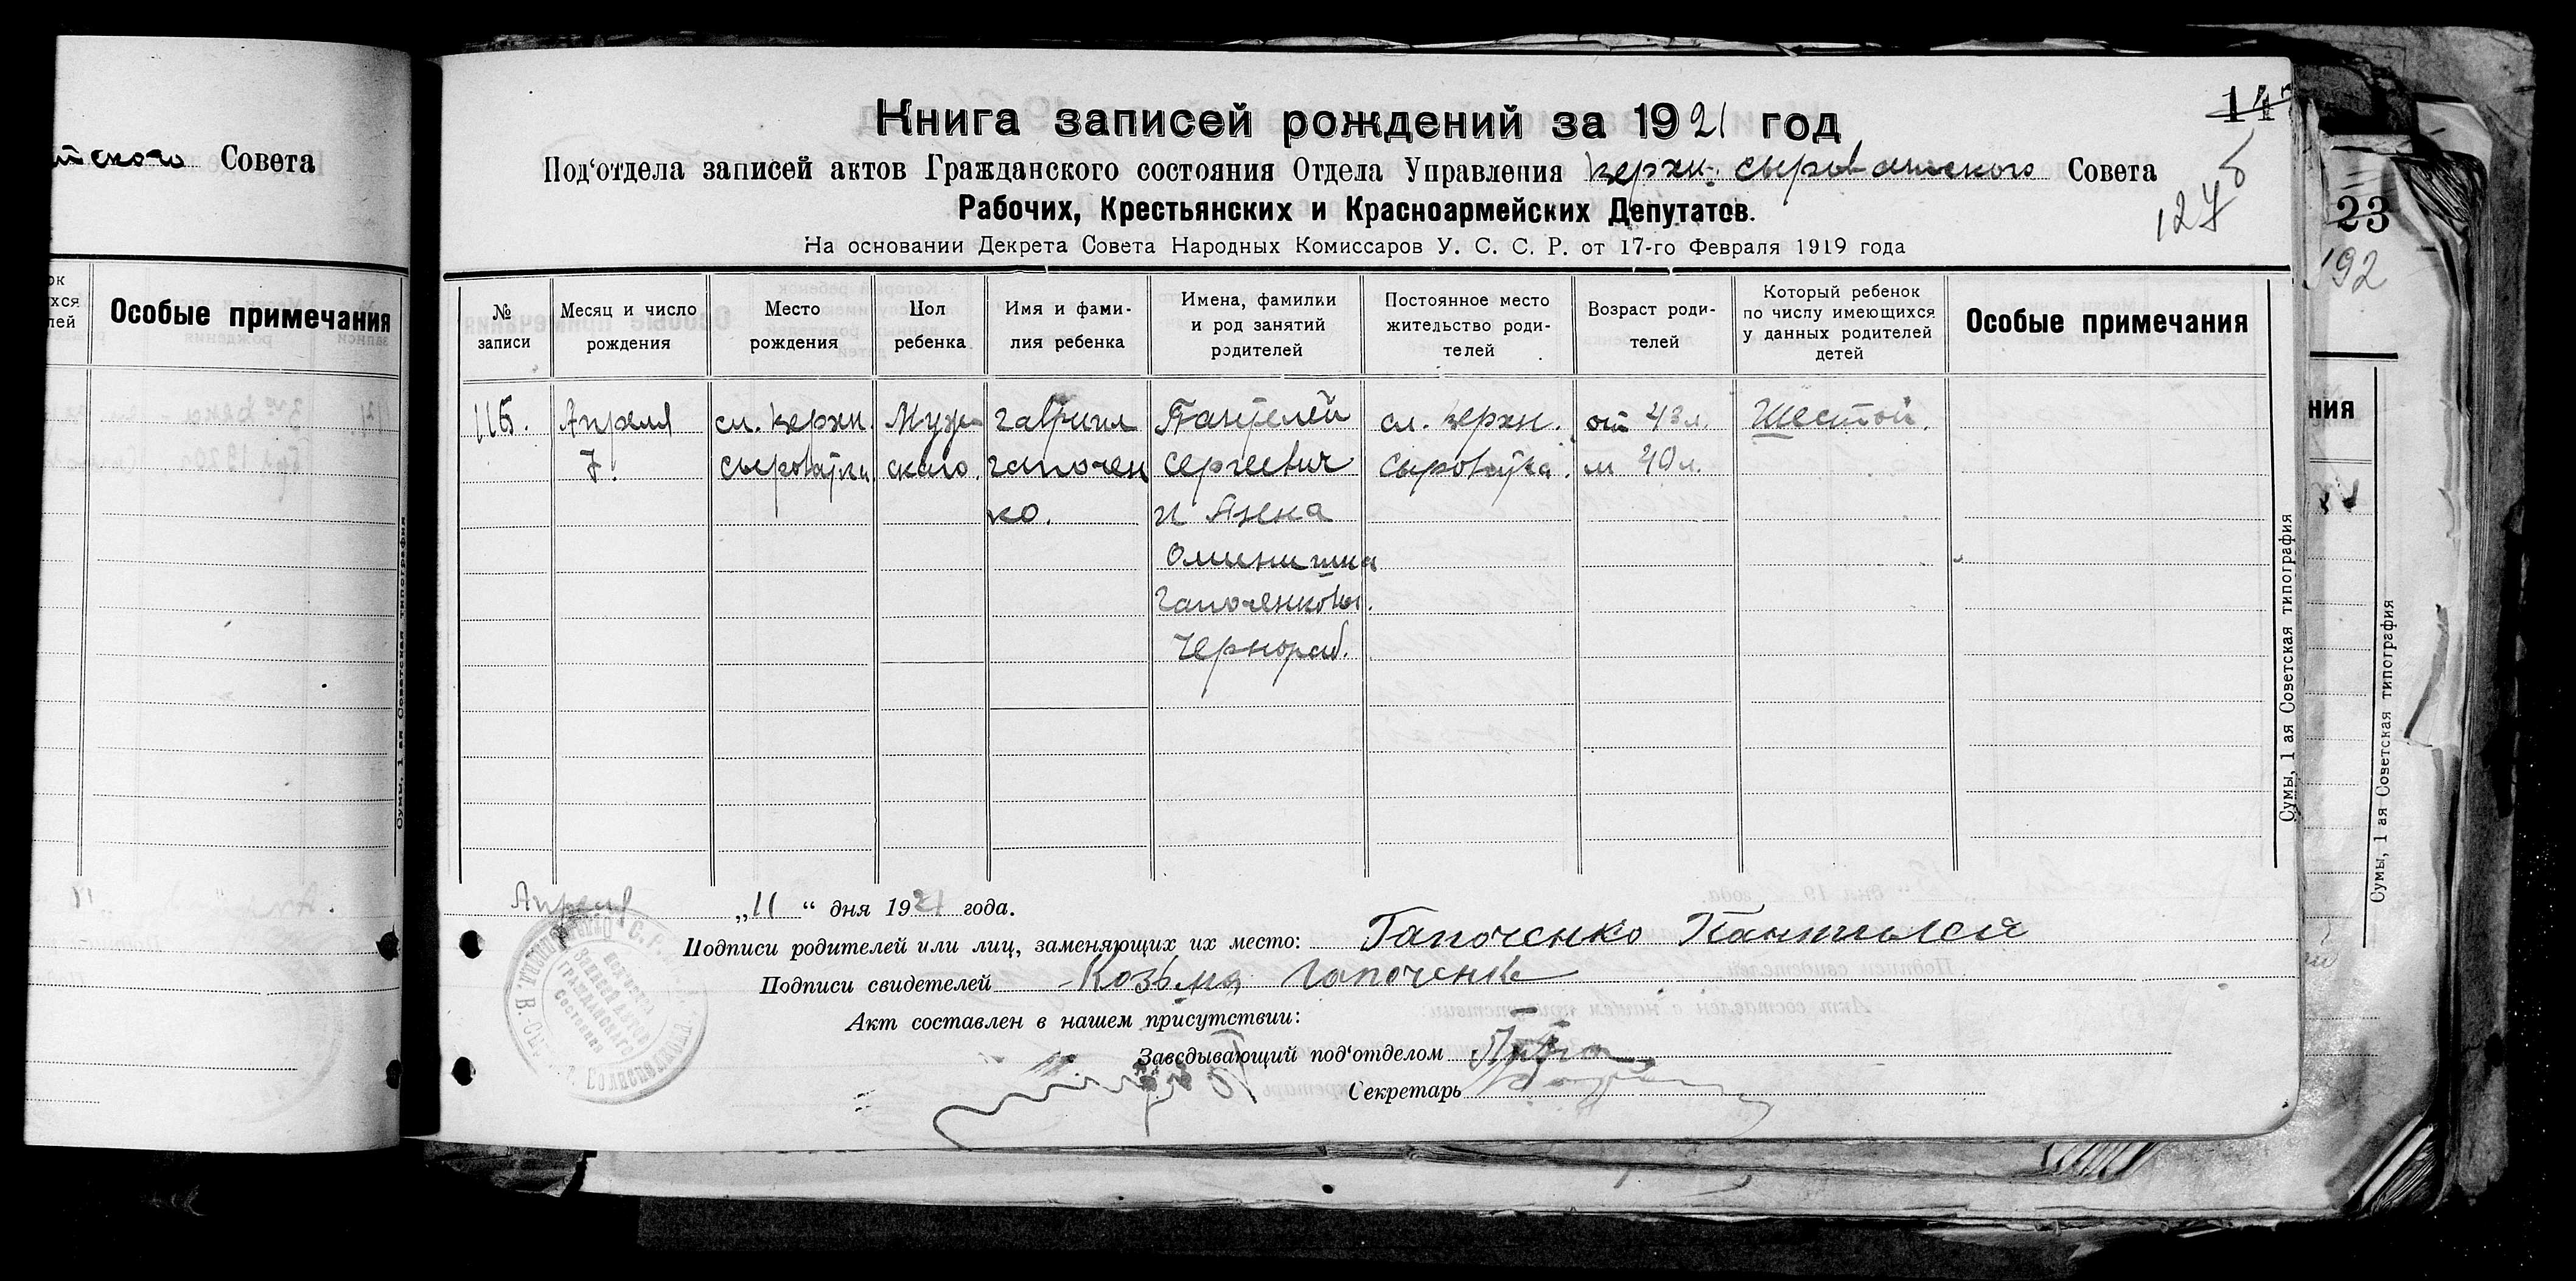 Совета
Особые примечания
Книга записей рождений за 1921 год
Под‘отдела записей актов Гражданского состояния Отдела Управления верхн. сыроватского Совета
Рабочих, Крестьянских и Красноармейских Депутатов.
На основании Декрета Совета Народных Комиссаров У. С. С. Р. от 17-го Февраля 1919 года
14
23
192
№ записи
Месяц и число рождения
Место рождения
Пол ребенка
Имя и фами-
лия ребенка
Имена, фамилии
и род занятий
родителей
Постоянное место
жительство роди-
телей
Возраст роди-
телей
Который ребенок
по числу имеющихся
у данных родителей
детей
Особые примечания
116.
Апреля
7.
сл. верхн.
сыроватки.
Муж
ского.
гавриил
гапочен
ко.
Пантелей
сергеевич
и Анна
гапоченковы.
чернораб.
сл. верхн.
сыроватка.
от 43 л.
м 40 л.
Шестой.
Апреля „11“ дня 1921 года.
Подписи родителей или лиц, заменяющих их место: Гапоченко Пантилей
Подписи свидетелей Козьма Гапоченко
Акт составлен в нашем присутствии:
Заведывающий под‘отделом
Секретарь
Сумы, 1 ая Советская типография
ния
Сумы, 1 ая Советская типография